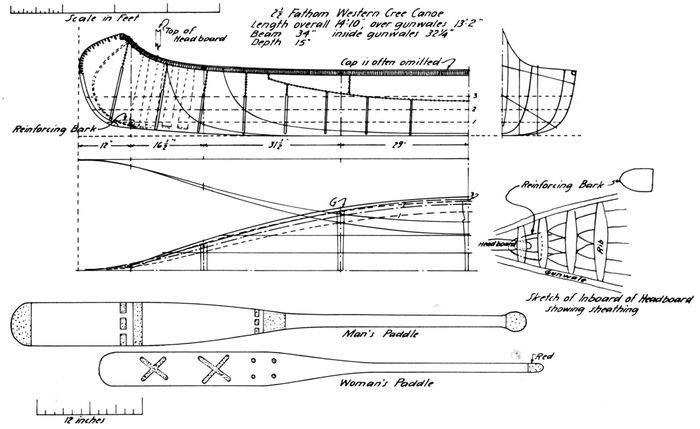 Scale in Feet
2½ Fathom Western Cree Canoe
Length overall 14'10", over gunwales 13'2"
Beam 34" inside gunwales 32¼"
Depth 15"
Top of
Headboard
Cap is often omitted
3
2
1
Reinforcing Bark
12"
16½"
31½"
29"
G
3
2
1
Reinforcing Bark
Headboard
Rib
Gunwale
Sketch of Inboard of Headboard
showing sheathing
Man's Paddle
Red
Woman's Paddle
12 inches